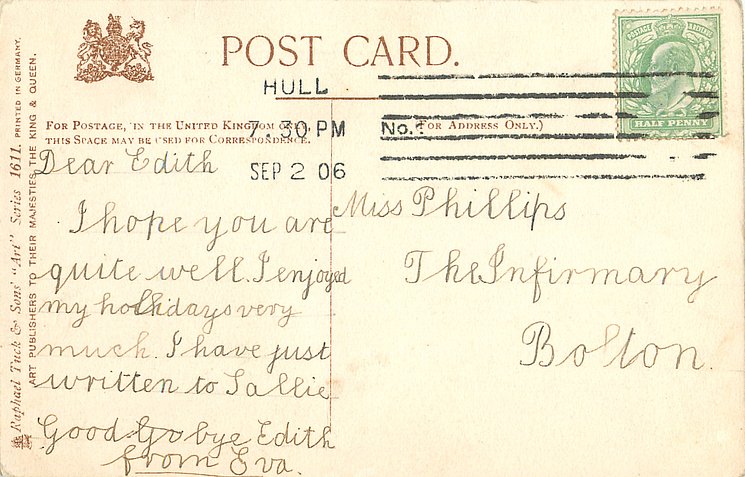 POST CARD.
HULL
7.30 PM
SEP 2 06
No.
FOR POSTAGE, IN THE UNITED KINGDOM ON
THIS SPACE MAY BE USED FOR CORRESPONDENCE.
(FOR ADDRESS ONLY.)
POSTAGE
HALF PENNY
Dear Edith
I hope you are
quite well. I enjoyed
my holidays very
much. I have just
written to Sallie
Good Go bye Edith
from Eva.
Miss Phillips
The Infirmary
Bolton.
Raphael Tuck & Sons' "Art" Series 1611. PRINTED IN GERMANY.
ART PUBLISHERS TO THEIR MAJESTIES THE KING & QUEEN.